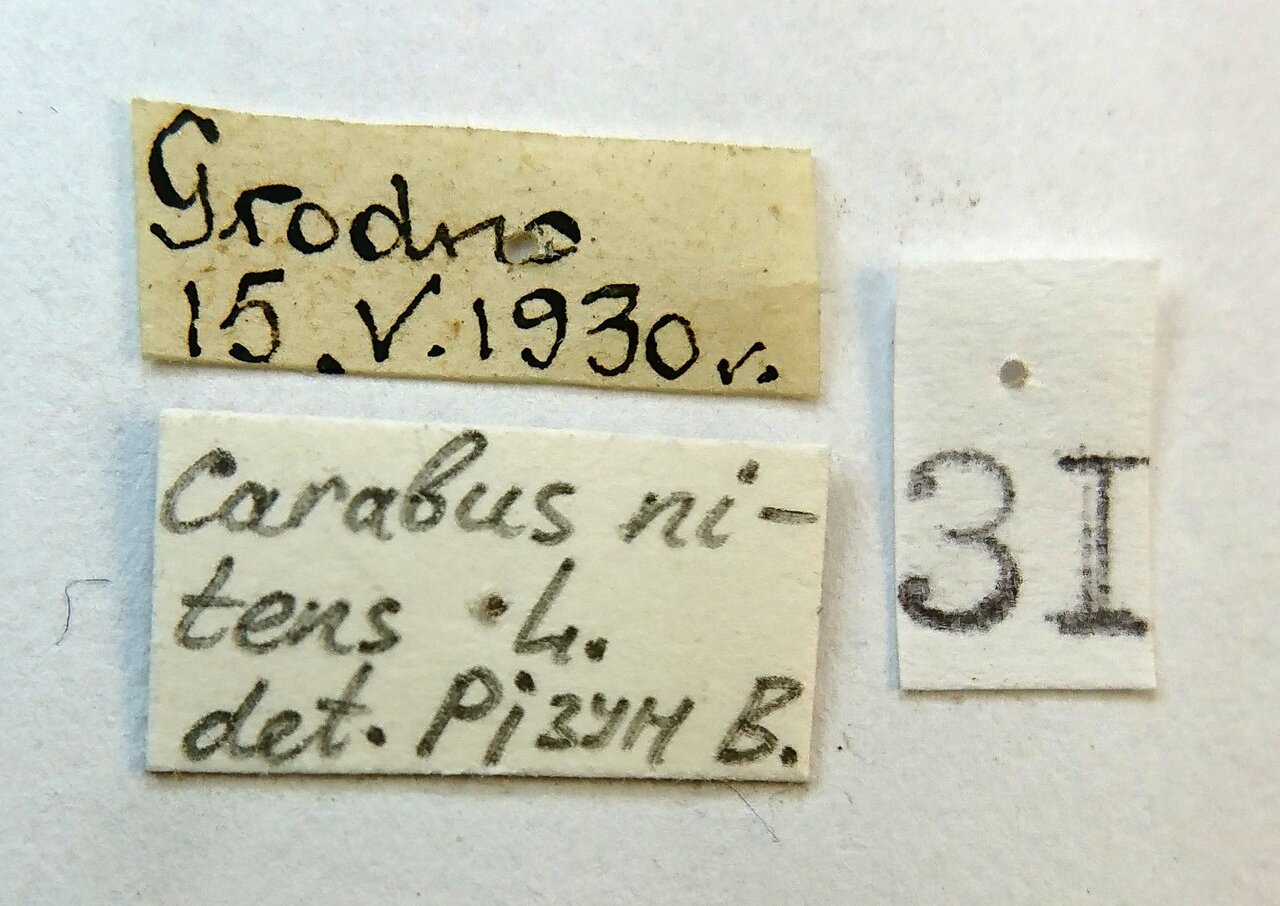 Grodno
15.V.1930 r.
Carabus ni-
tens L.
det. Різун В.
3I